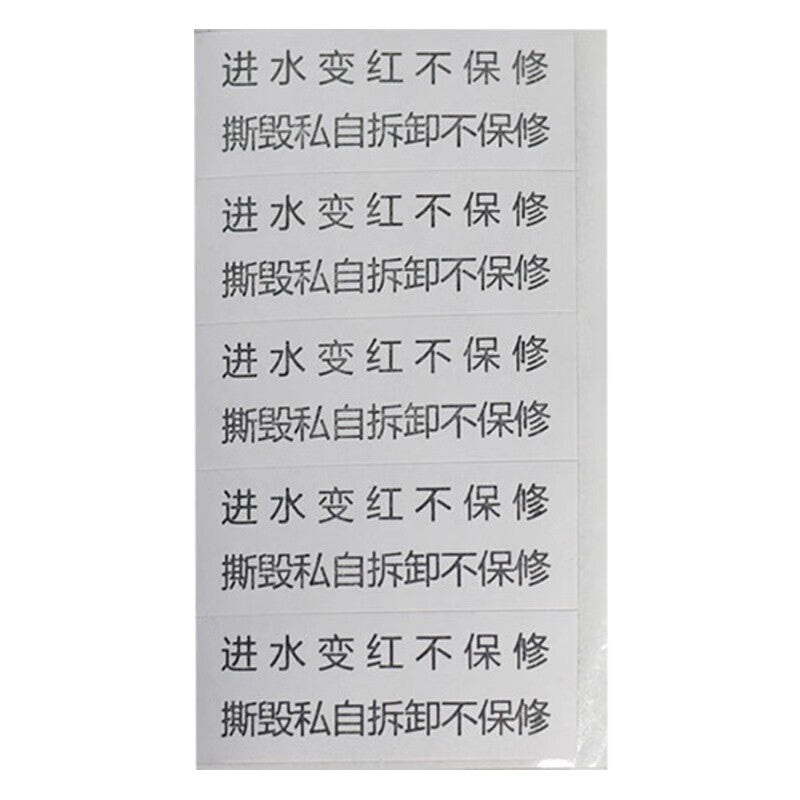 进水变红不保修
撕毁私自拆卸不保修
进水变红不保修
撕毁私自拆卸不保修
进水变红不保修
撕毁私自拆卸不保修
进水变红不保修
撕毁私自拆卸不保修
进水变红不保修
撕毁私自拆卸不保修